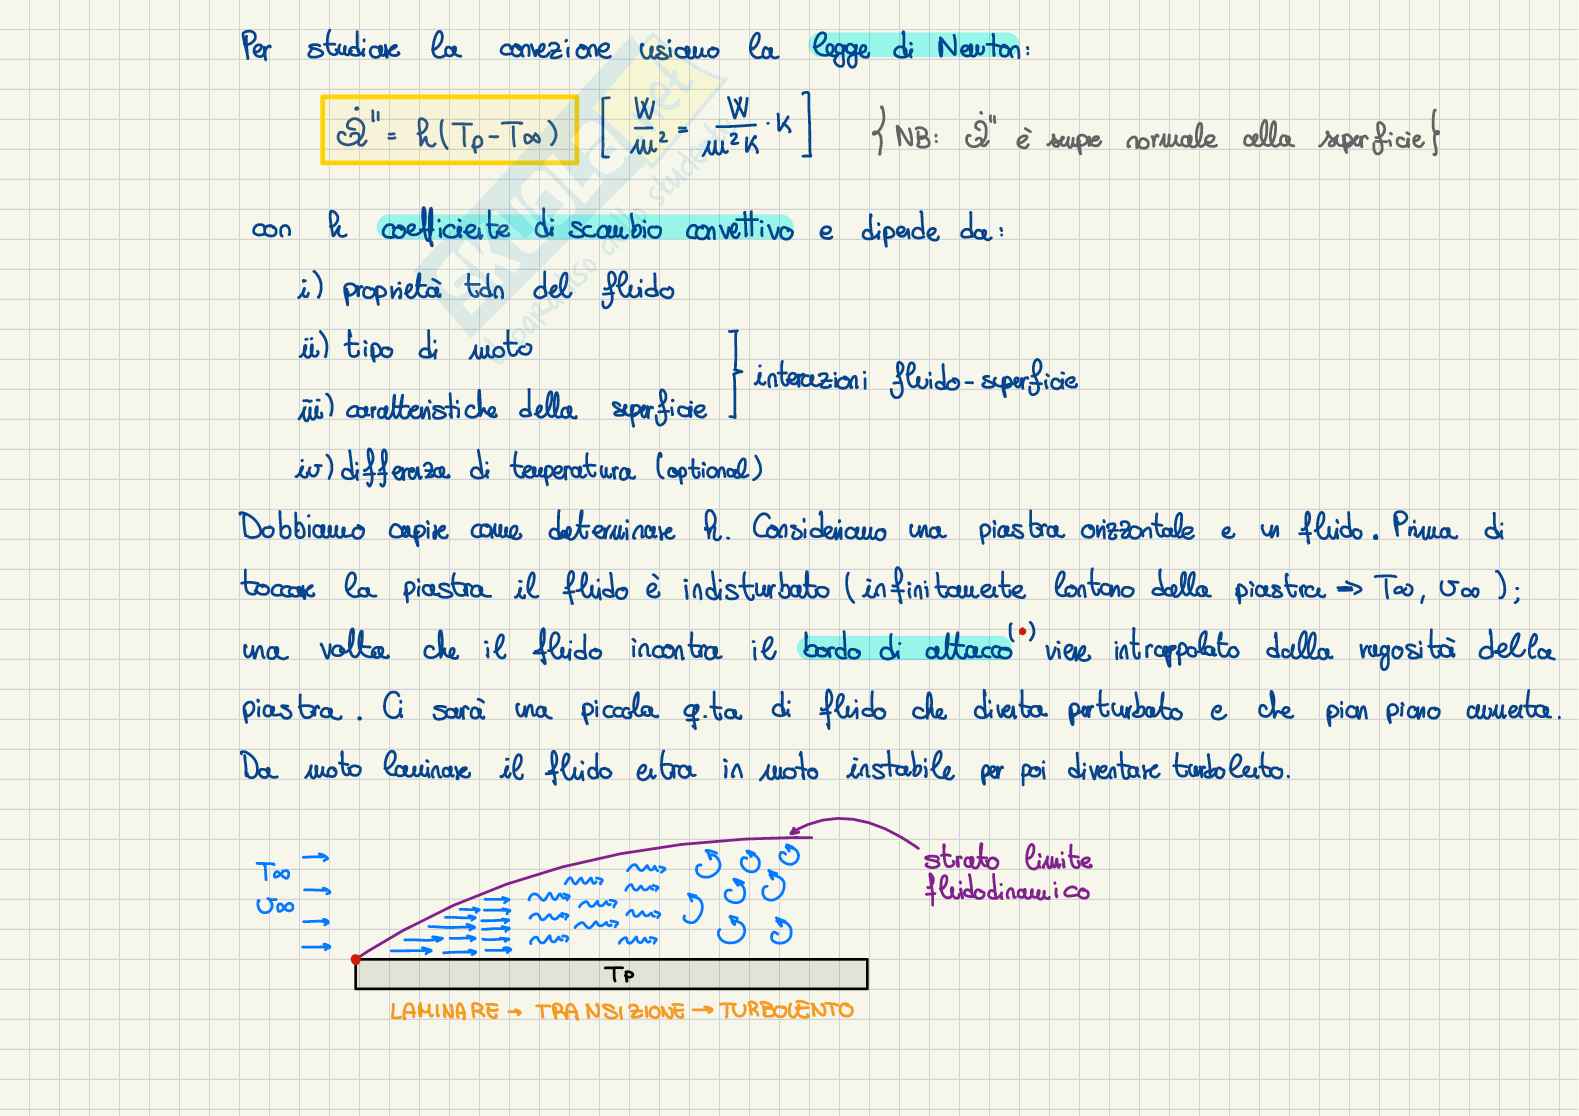 Per studiare la convezione usiamo la legge di Newton:
Q̇" = h(Tp - T∞) [W/m² = W/m²K · K] {NB: Q̇" è sempre normale alla superficie}
con h coefficiente di scambio convettivo e dipende da:
i) proprietà tdn del fluido
ii) tipo di moto
iii) caratteristiche della superficie
interazioni fluido-superficie
iv) differenza di temperatura (optional)
Dobbiamo capire come determinare h. Consideriamo una piastra orizzontale e un fluido. Prima di
toccare la piastra il fluido è indisturbato (infinitamente lontano dalla piastra => T∞, υ∞);
una volta che il fluido incontra il bordo di attacco (•) viene intrappolato dalla rugosità della
piastra. Ci sarà una piccola q.ta di fluido che diventa perturbato e che pian piano aumenta.
Da moto laminare il fluido entra in moto instabile per poi diventare turbolento.
strato limite
fluidodinamico
T∞
υ∞
Tp
LAMINARE → TRANSIZIONE → TURBOLENTO
skuola.net